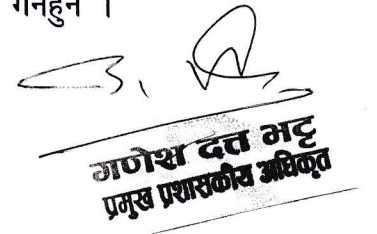 गर्नुहुन ।
गणेश दत्त भट्ट
प्रमुख प्रशासकीय अधिकृत